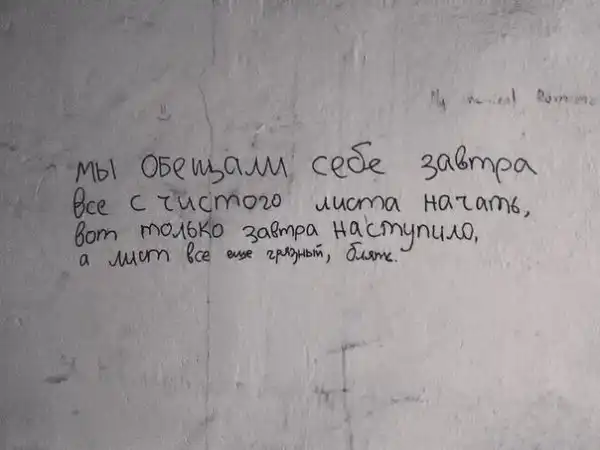 мы обещали себе завтра
все с чистого листа начать,
вот только завтра наступило,
а лист все еще грязный, блять.